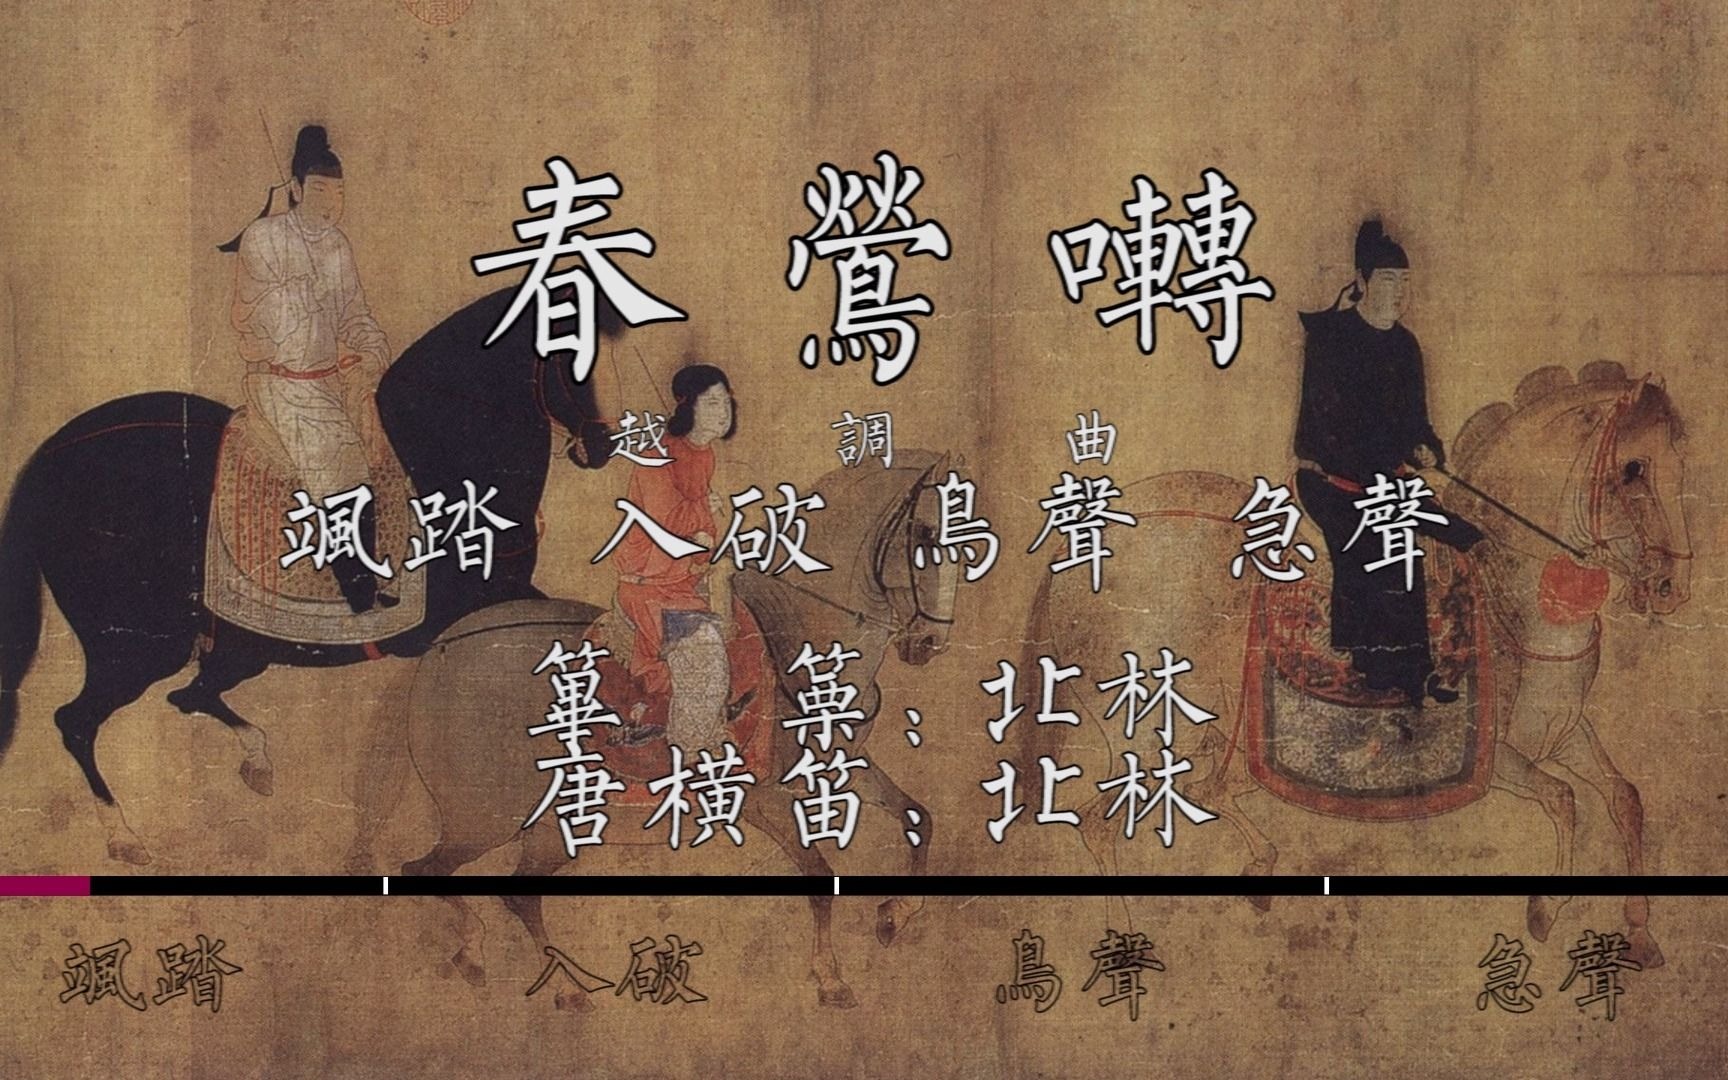 春鶯囀
越調曲
颯踏 入破 鳥聲 急聲
篳篥：北林
唐橫笛：北林
颯踏 入破 鳥聲 急聲